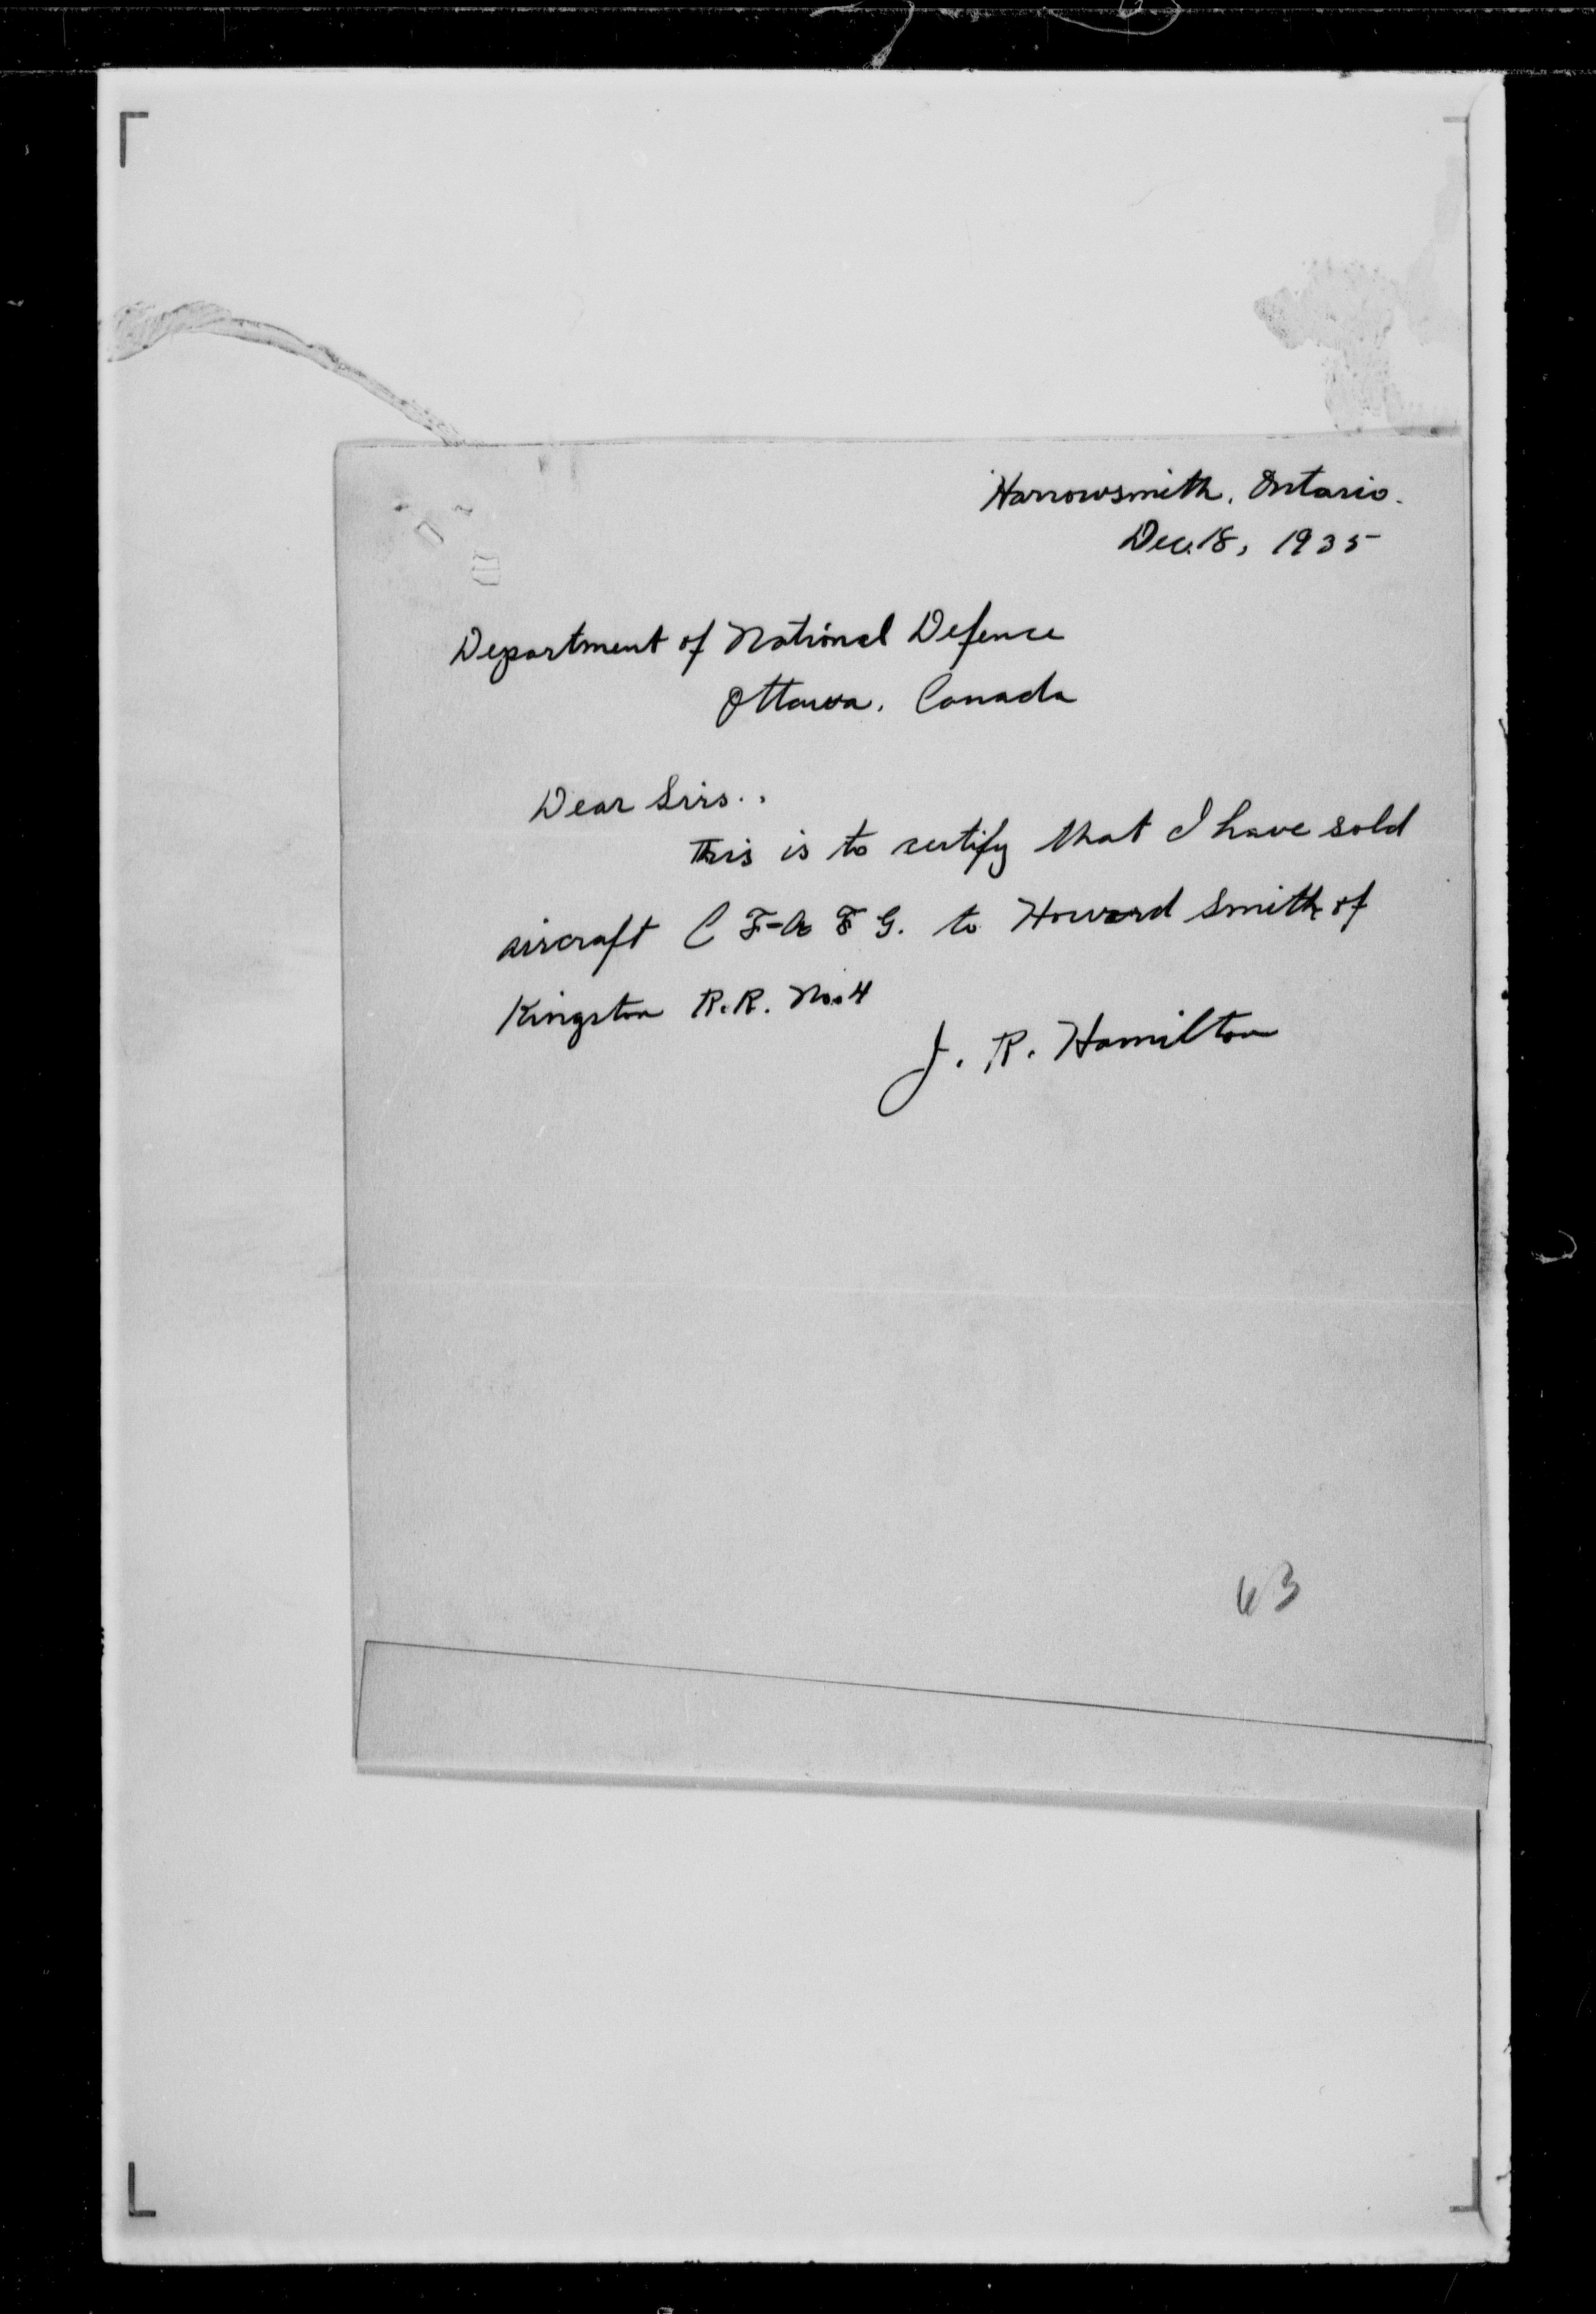 Harrowsmith, Ontario.
Dec. 18, 1935
Department of National Defence
Ottawa, Canada
Dear Sirs..
This is to certify that I have sold
aircraft C F-A F G. to Howard Smith of
Kingston R.R. No. 4
J. R. Hamilton
63